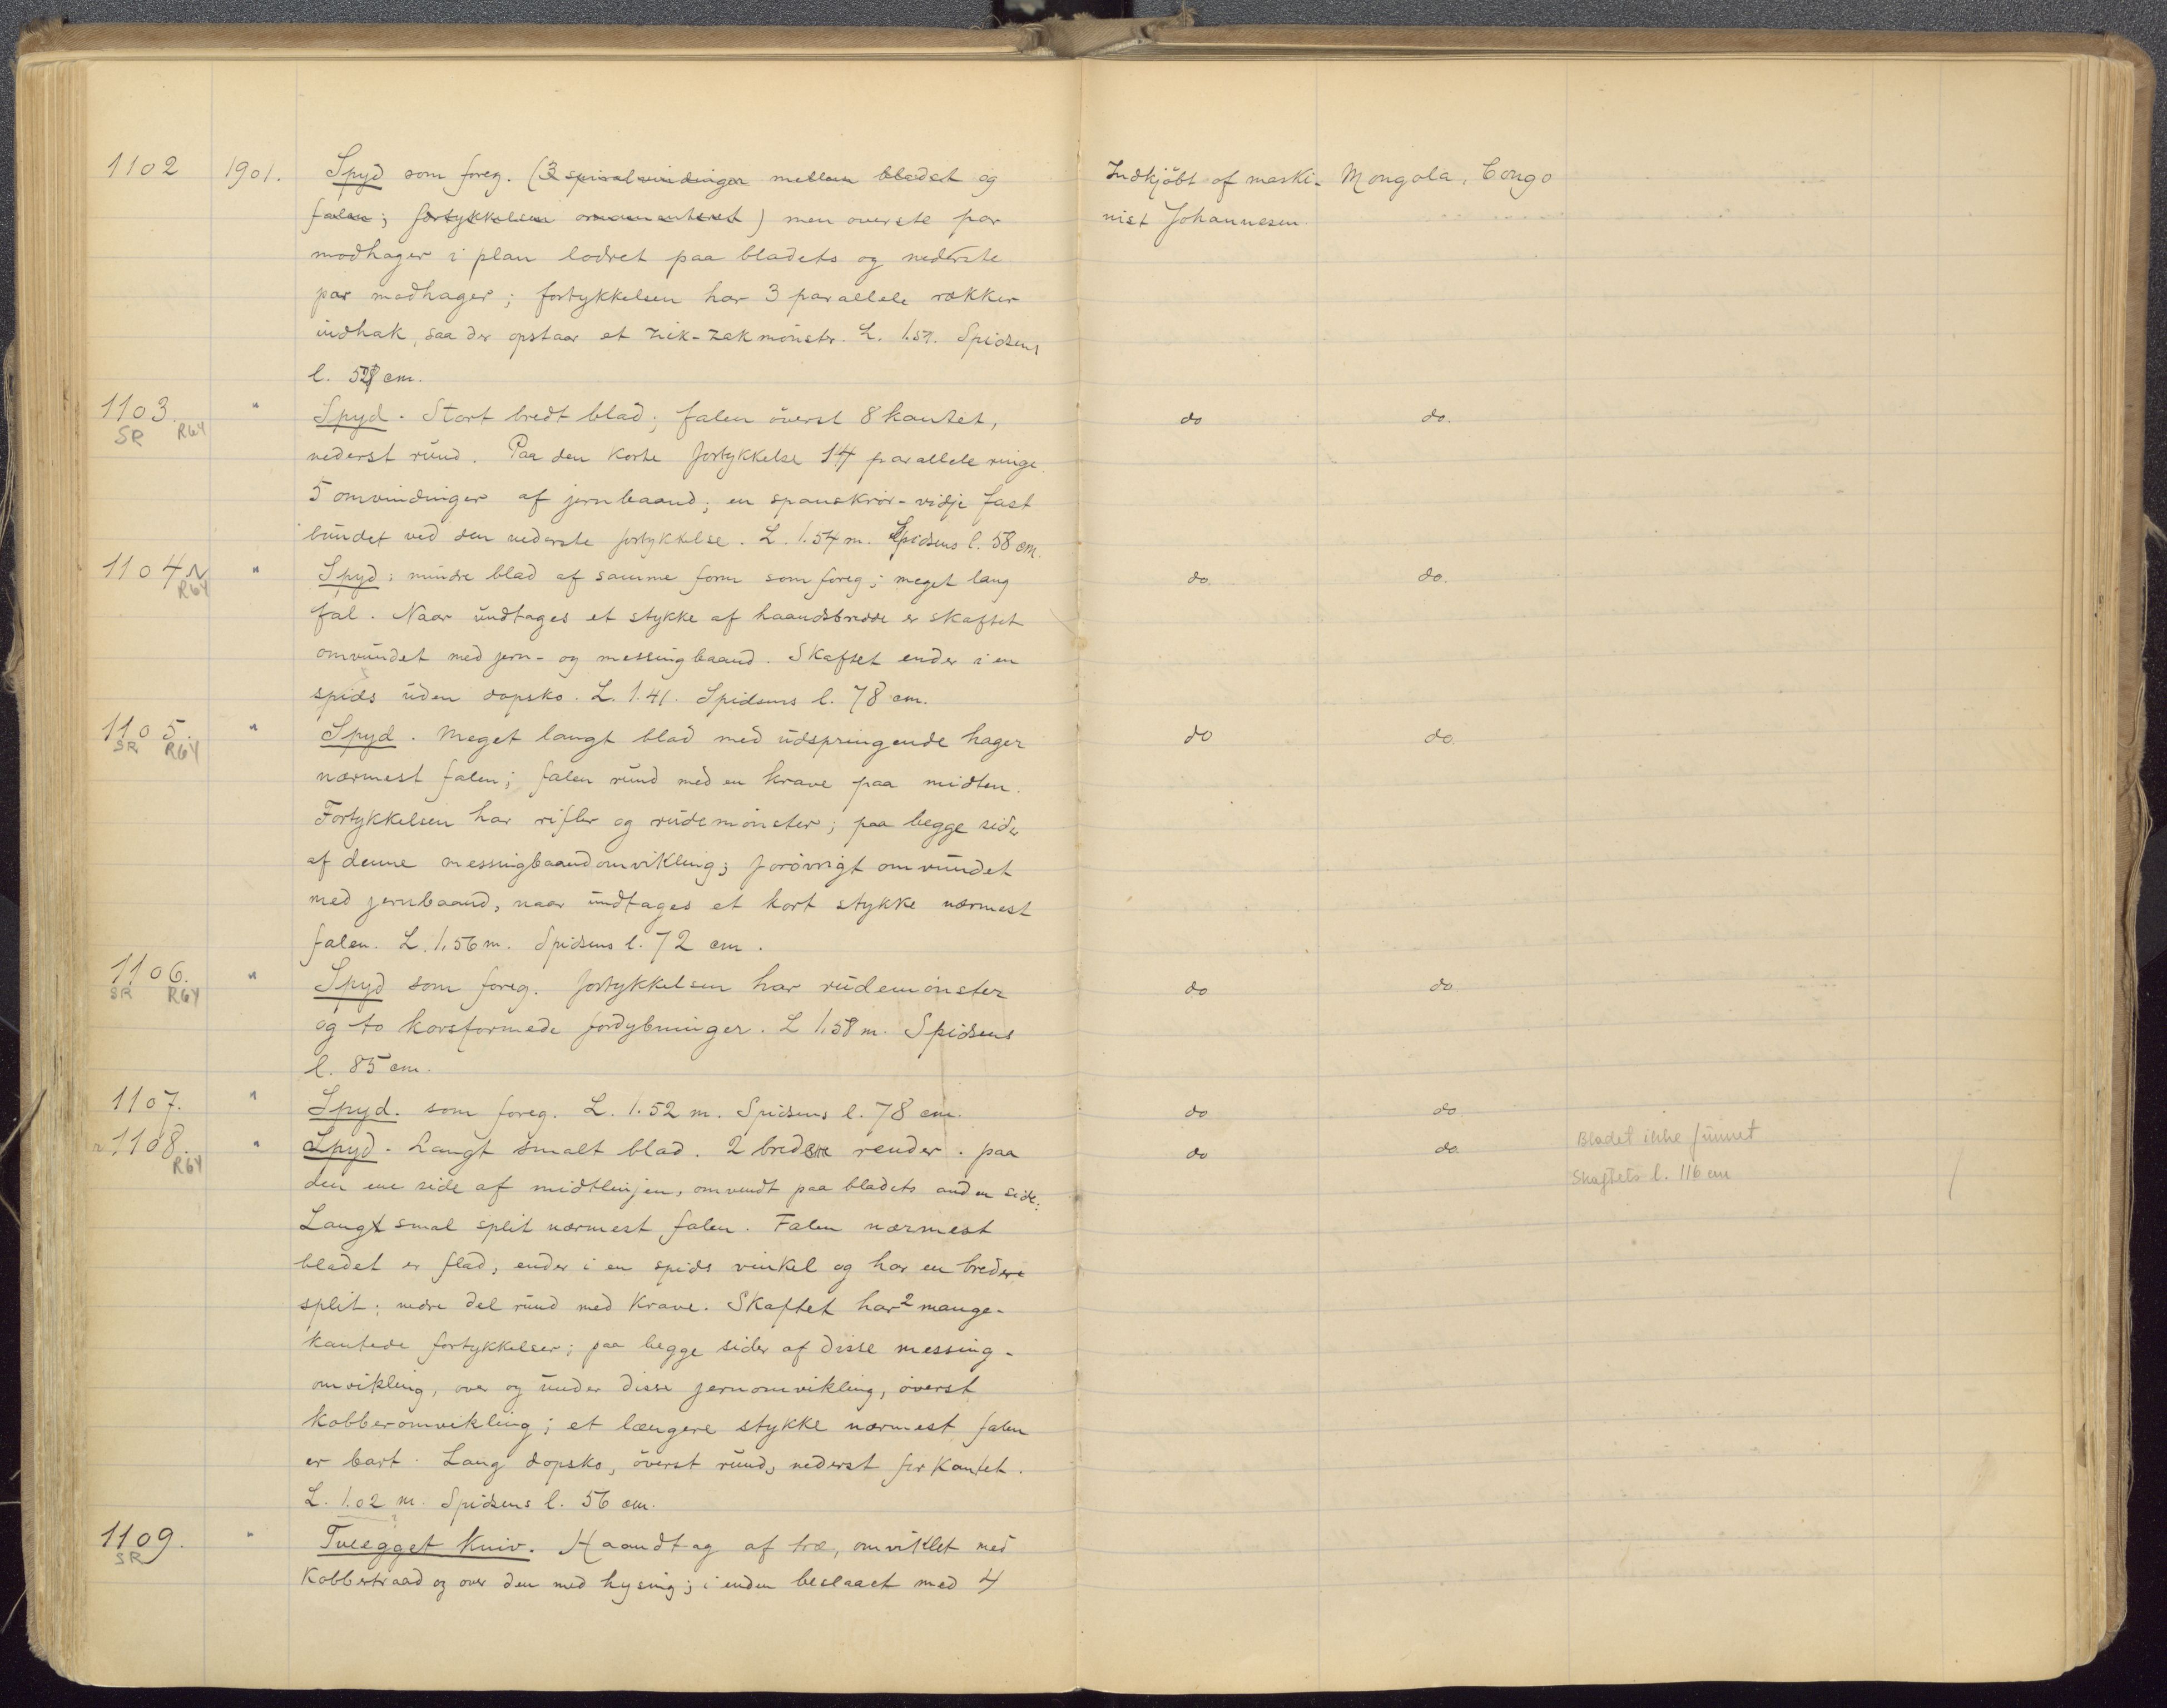 1102 1901. Spyd som foreg. (3 spiralvindinger mellem bladet og Indkjöbt af maski- Mongala, Congo
falen; fortykkelsen ornamenteret) men överste par nist Johannesen
modhager i plan lodret paa bladets og nederste
par modhager; fortykkelsen har 3 parallele rækker
indhak, saa der opstaar et zik-zak mönster. L. 1.57. Spidsens
l. 52 cm.
1103. " Spyd. Stort bredt blad; falen överst 8 kantet, do do.
SR R64
nederst rund. Paa den korte fortykkelse 14 parallele ringe.
5 omvindinger af jernbaand; en spanskrör-vidje fast
bundet ved den nederste fortykkelse. L. 1.54 m. Spidsens l. 58 cm.
1104 " Spyd; mindre blad af samme form som foreg; meget lang do. do.
R64
fal. Naar undtages et stykke af haandsbredde er skaftet
omvundet med jern- og messingbaand. Skaftet ender i en
spids uden dopsko. L. 1.41. Spidsens l. 78 cm.
1105. " Spyd. Meget langt blad med udspringende hager do do.
SR R64
nærmest falen; falen rund med en krave paa midten.
Fortykkelsen har rifler og rudemönster; paa begge sider
af denne messingbaandomvikling; forövrigt omvundet
med jernbaand, naar undtages et kort stykke nærmest
falen. L. 1,56 m. Spidsens l. 72 cm.
1106. " Spyd som foreg. fortykkelsen har rudemönster do do.
SR R64
og to korsformede fordybninger. L 1.58 m. Spidsens
l. 85 cm.
1107. " Spyd. som foreg. L. 1.52 m. Spidsens l. 78 cm. do do.
1108. " Spyd. Langt smalt blad. 2 bredere render. paa do do. Bladet ikke funnet
R64
den ene side af midtlinjen, omvendt paa bladets anden side. Skaftets l. 116 cm
Langt smal split nærmest falen. Falen nærmest
bladet er flad, ender i en spids vinkel og har en bredere
split; nedre del rund med krave. Skaftet har 2 mange-
kantede fortykkelser; paa begge sider af disse messing-
omvikling, over og under disse jernomvikling, överst
kobberomvikling; et længere stykke nærmest falen
er bart. Lang dopsko, överst rund, nederst firkantet.
L. 1.02 m. Spidsens l. 56 cm.
1109. " Tveegget kniv. Haandtag af træ, omviklet med
SR
Kobbertraad og over den med hysing; i enden beslaaet med 4